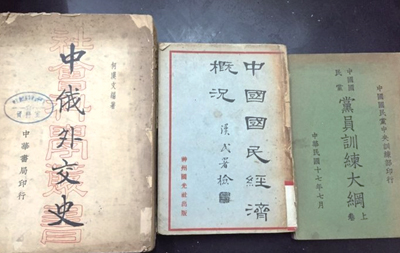 社會科學叢書
何漢文編著
中俄外交史
中華書局印行
中國國民經濟
概況
署檢
神州國光社出版
中國國民黨中央訓練部印行
中國國
民黨
黨員訓練大綱
上
卷
中華民國十七年七月